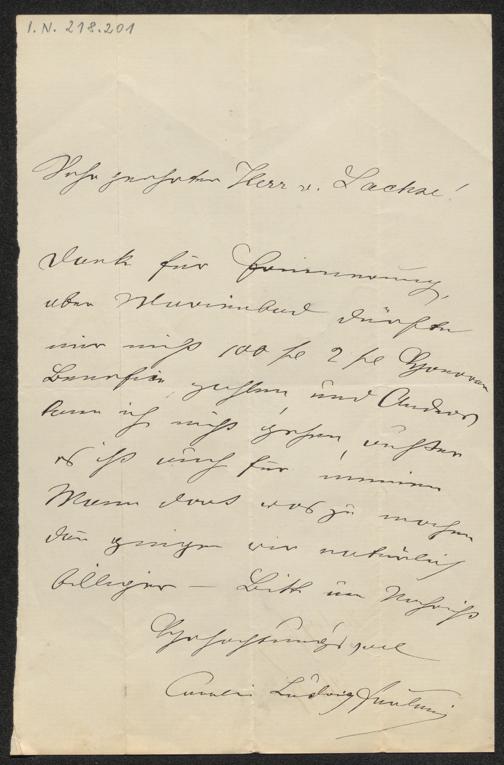 I. N. 218.201
Sehr geehrter Herr v. Lachse!
Dank für Erinnerung,
aber Marienbad dürfte
mir nicht 100 fl 2 ½
Benefice zahlen und Anders
kann ich nicht gehen, außer
es ist auch für meinen
Mann dort was zu machen
dan gingen wir natürlich
billiger — Bitte um Nachricht
Hochachtungsvoll
Ludwig